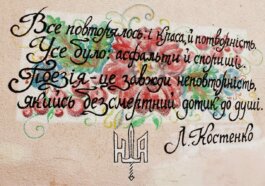 Все повторялось: і краса, й потворність.
Усе було: асфальти й спориші.
Поезія - це завжди неповторність,
якийсь безсмертний дотик до душі.
Л. Костенко